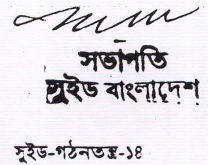 সভাপতি
সুইড বাংলাদেশ
সুইড-গঠনতন্ত্র-১৪